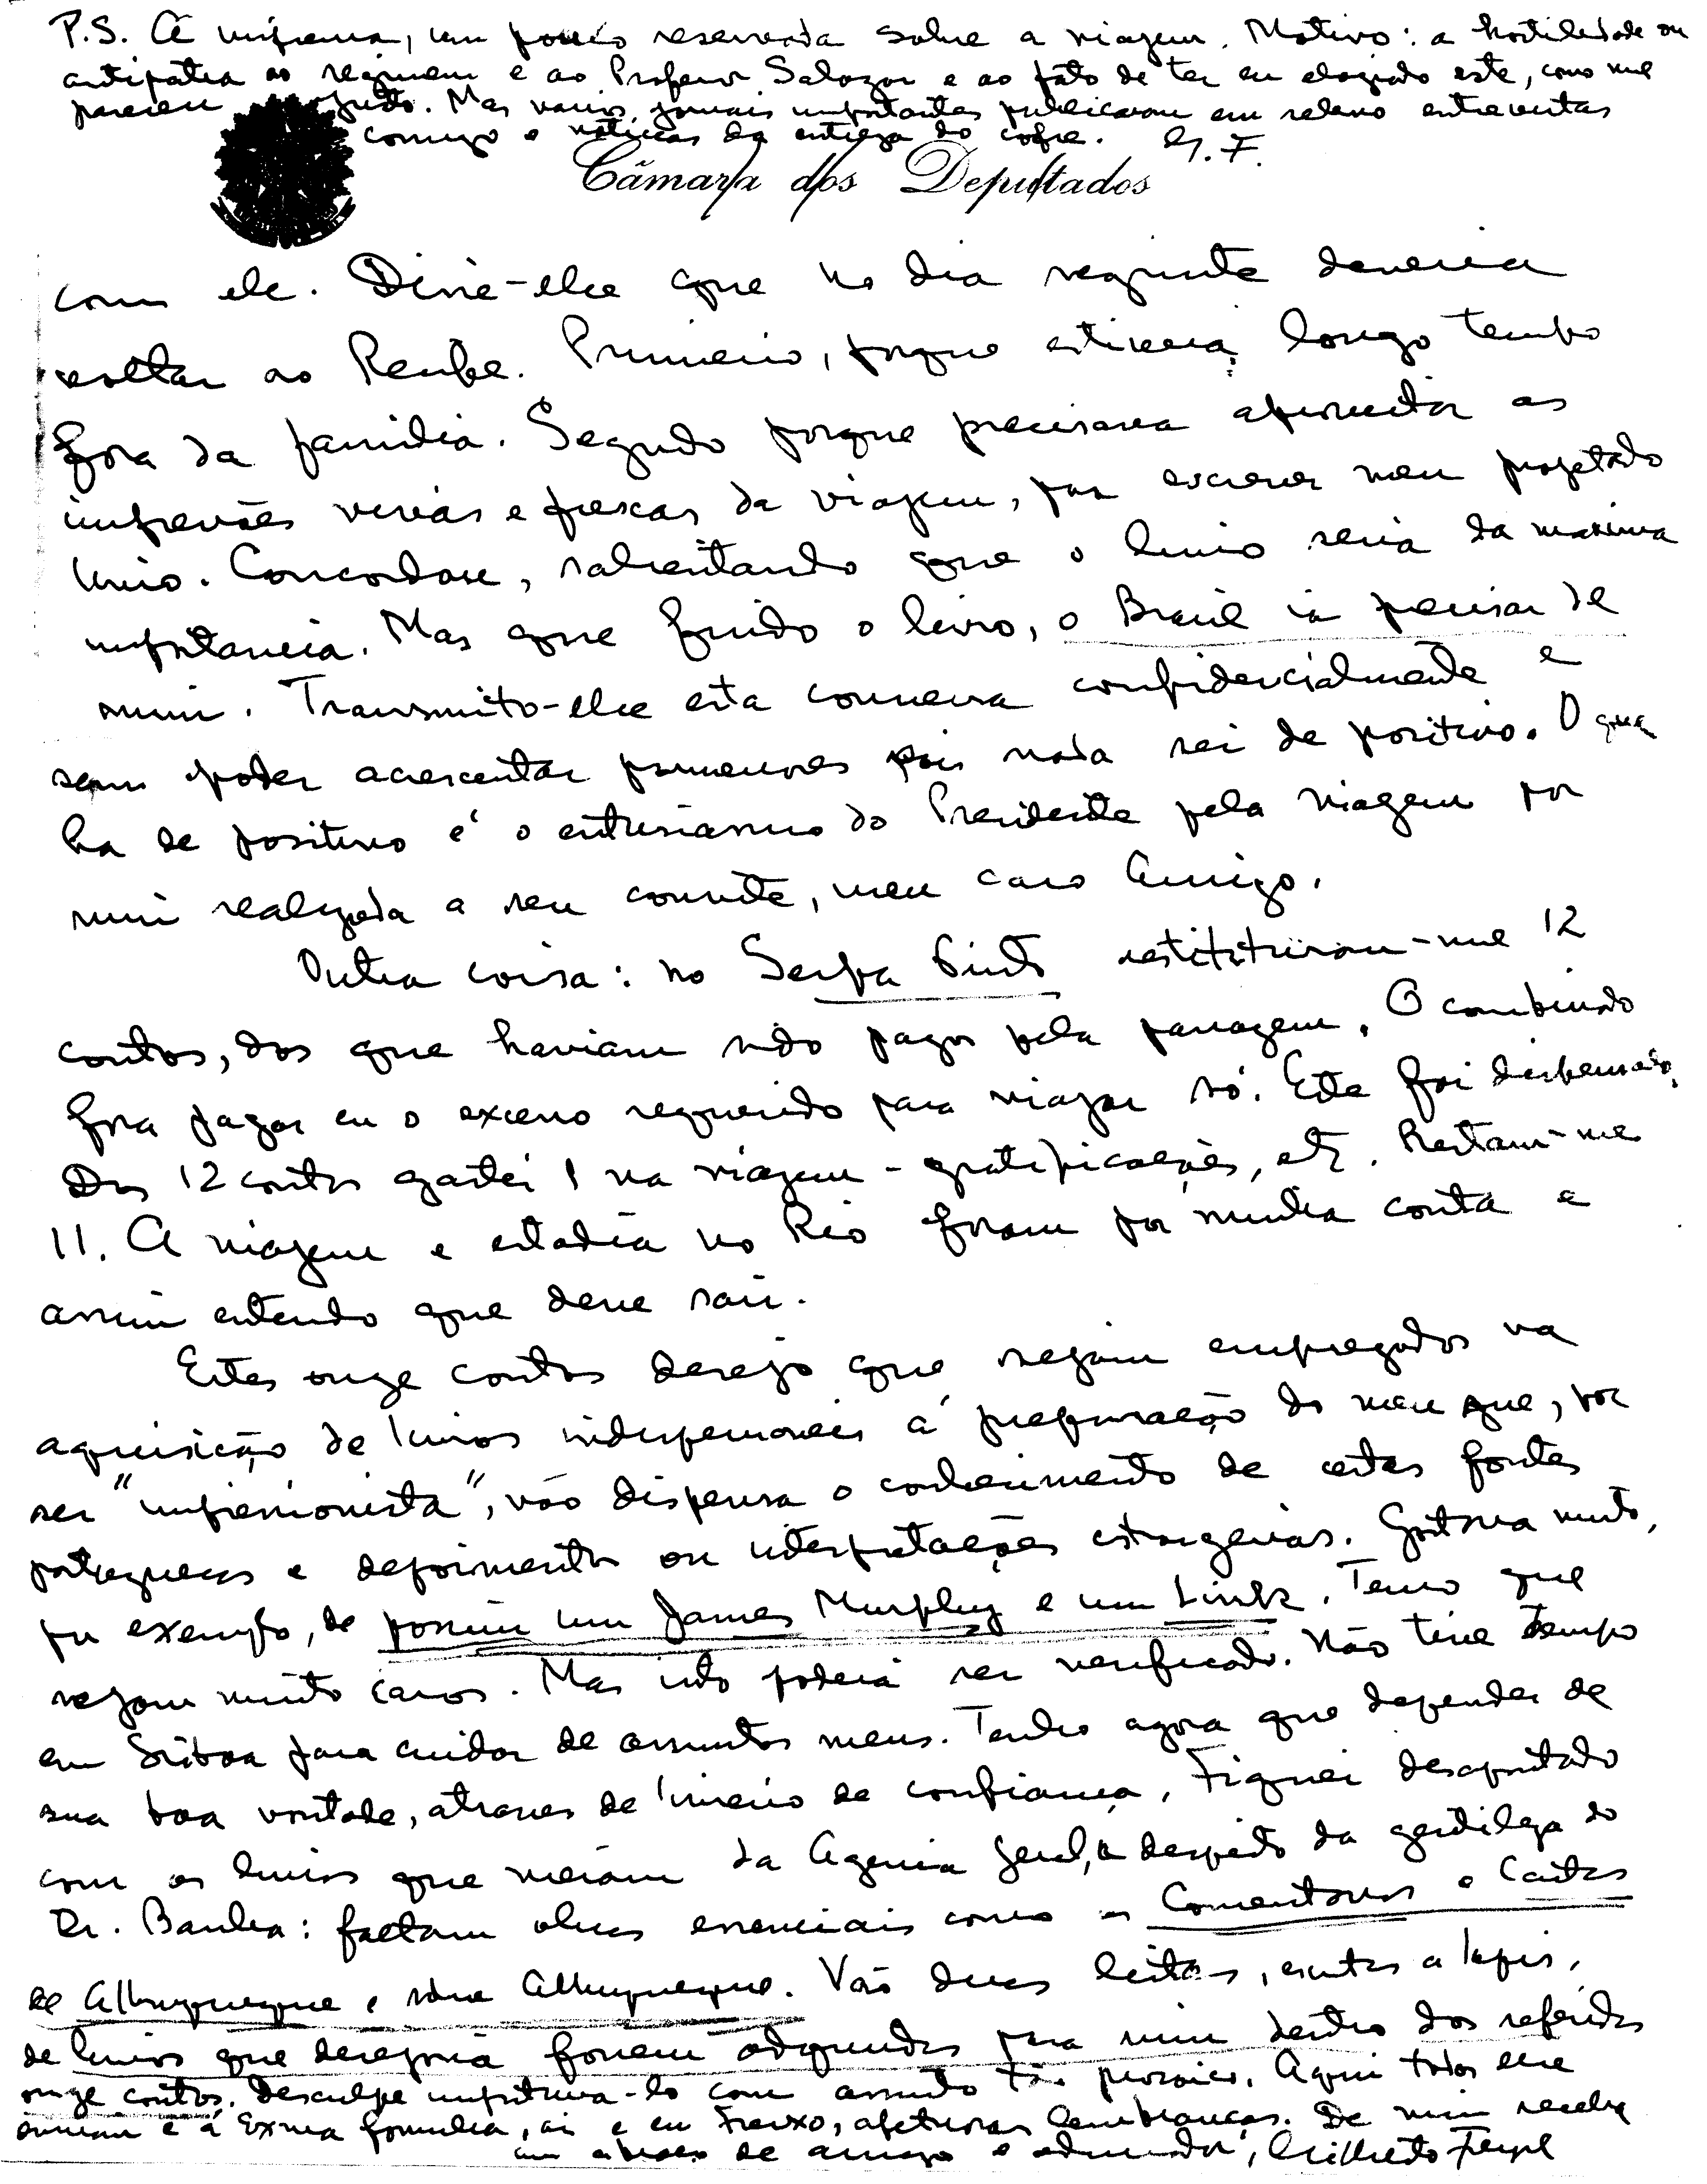 P.S. A imprensa, um pouco reservada sobre a viagem. Motivo: a hostilidade ou
antipatia ao regimem e ao Professor Salazar e ao fato de ter eu elogiado este, como me
pareceu justo. Mas varios jornais importantes publicaram em relevo entrevistas
comigo e noticias da entrega do cofre. G. F.
Câmara dos Deputados
com ele. Disse-lhe que no dia seguinte deveria
voltar ao Recife. Primeiro, porque estivera longo tempo
fora da familia. Segundo porque precisava aproveitar as
impressões vivas e frescas da viagem, para escrever meu projetado
livro. Concordou, salientando que o livro seria da maxima
importancia. Mas que findo o livro, o Brasil ia precisar de
mim. Transmito-lhe esta conversa confidencialmente e
sem poder acrescentar pormenores pois nada sei de positivo. O que
ha de positivo é o entusiasmo do Presidente pela viagem por
mim realizada a seu convite, meu caro Amigo.
Outra coisa: no Serpa Pinto restituiram-me 12
contos, dos que haviam sido pagos pela passagem. O combinado
fora pagar eu o excesso requerido para viajar só. Este foi dispensado.
Dos 12 contos gastei 1 na viagem - gratificações, etc. Restam-me
11. A viagem e estadia no Rio foram por minha conta e
assim entendo que deve sair.
Estes onze contos desejo que sejam empregados na
aquisição de livros indispensaveis á preparação do meu que, por
ser "impressionista", não dispensa o conhecimento de certas fontes
portuguesas e depoimentos ou interpretações estrangeiras. Gostaria muito,
por exemplo, de possuir um James Murphy e um Link. Temo que
sejam muito caros. Mas isto poderá ser verificado. Não tive tempo
em Lisboa para cuidar de assuntos meus. Tenho agora que depender de
sua boa vontade, atraves de livreiro de confiança. Fiquei desapontado
com os livros que vieram da Agencia Geral, a despeito da gentileza do
Dr. Banha: faltam obras essenciais como os Comentarios e Cartas
de Albuquerque e sobre Albuquerque. Vão duas listas, escritas a lapis,
de livros que desejaria fossem adquiridos para mim dentro dos referidos
onze contos. Desculpe importuna-lo com assunto tão prosaico. Aqui todos lhe
enviam e á Exma familia, ai e em Freixo, afetuosas lembranças. De mim receba
um abraço de amigo e admirador, Gilberto Freyre